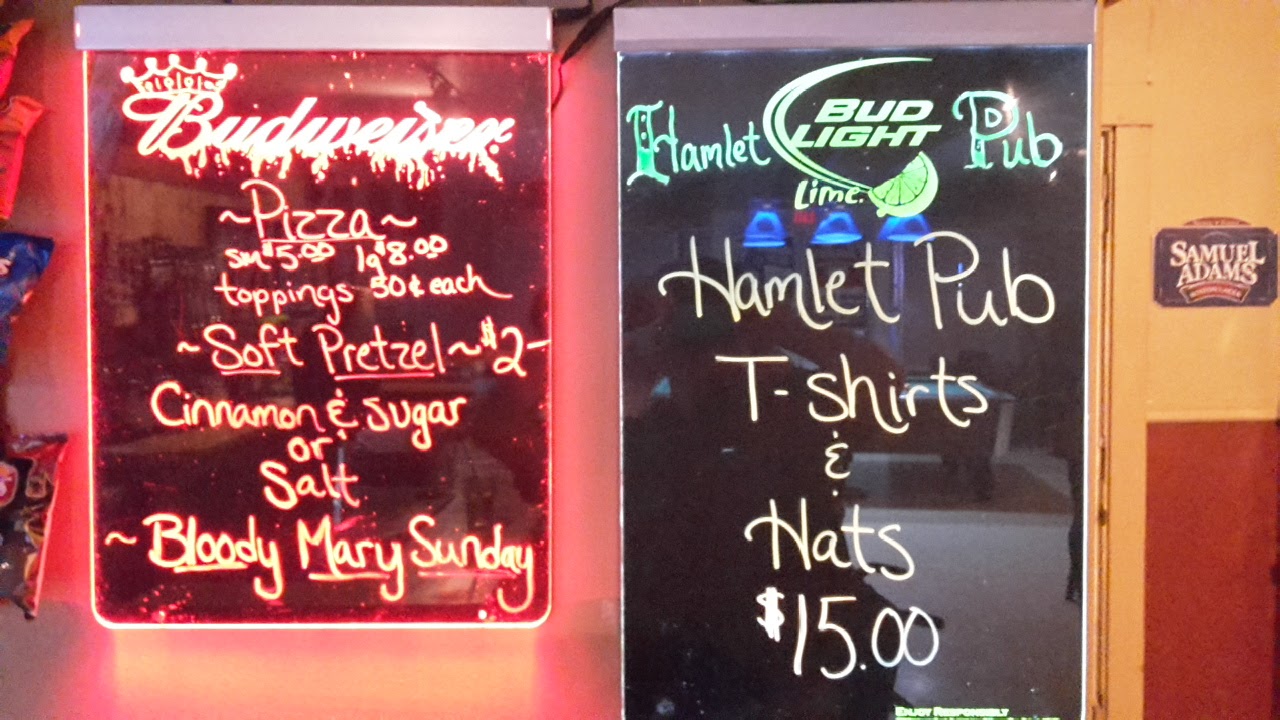 Budweiser
~Pizza~
sm $5.00 lg $8.00
toppings 50¢ each
~Soft Pretzel~ $2-
Cinnamon & sugar
or
Salt
~Bloody Mary Sunday
Hamlet BUD LIGHT Lime. Pub
Hamlet Pub
T-shirts
&
Hats
$15.00
ENJOY RESPONSIBLY
SAMUEL
ADAMS